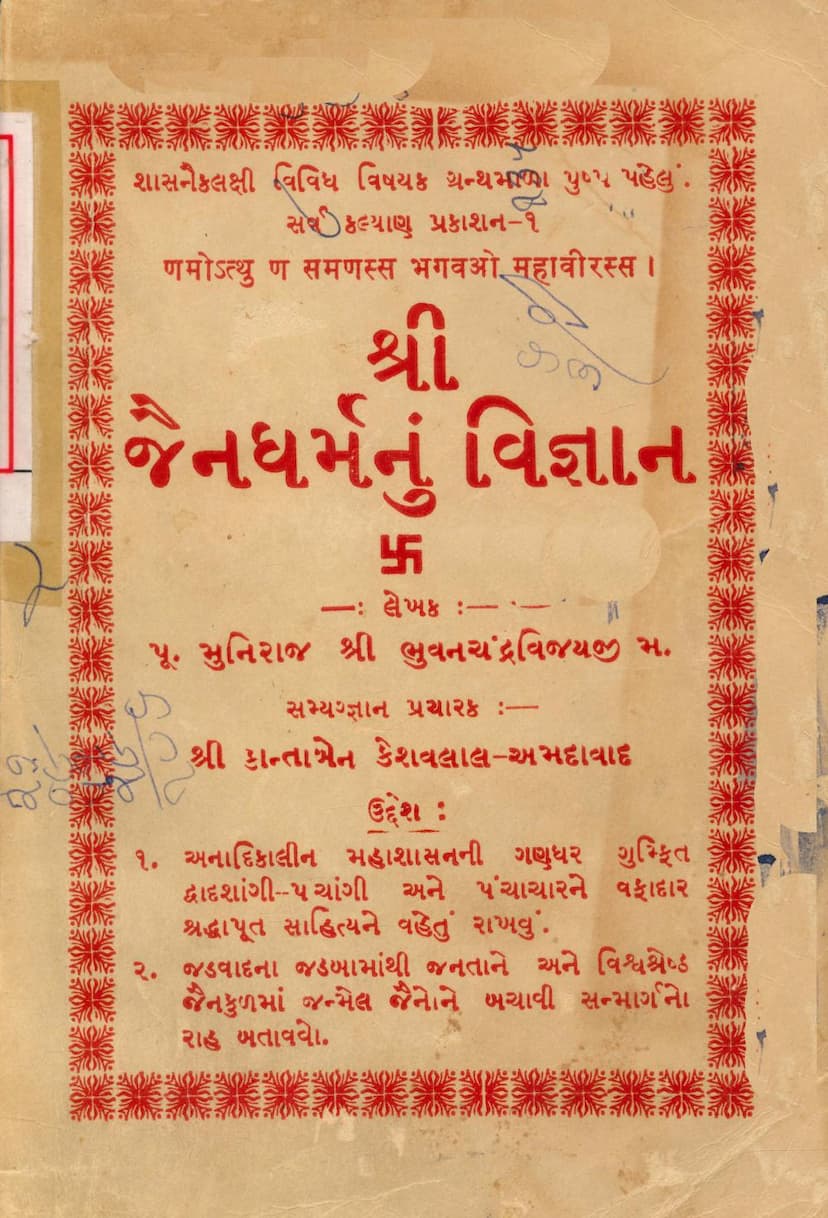 શાસનૈકલક્ષી વિવિધ વિષયક ગ્રન્થમાળા પુષ્પ પહેલું.
સર્વ કલ્યાણ પ્રકાશન-૧
ણમોઽત્થુ ણ સમણસ્સ ભગવઓ મહાવીરસ્સ ।
શ્રી
જૈનધર્મનું વિજ્ઞાન
卐
—: લેખક :—
પૂ. મુનિરાજ શ્રી ભુવનચંદ્રવિજયજી મ.
સમ્યગ્જ્ઞાન પ્રચારક :—
શ્રી કાન્તાબેન કેશવલાલ-અમદાવાદ
ઉદ્દેશ :
૧. અનાદિકાલીન મહાશાસનની ગણધર ગુમ્ફિત
દ્વાદશાંગી--પચાંગી અને પંચાચારને વફાદાર
શ્રદ્ધાપૂત સાહિત્યને વહેતું રાખવું.
૨. જડવાદના જડબામાંથી જનતાને અને વિશ્વશ્રેષ્ઠ
જૈનકુળમાં જન્મેલ જૈનોને બચાવી સન્માર્ગનો
રાહ બતાવવો.